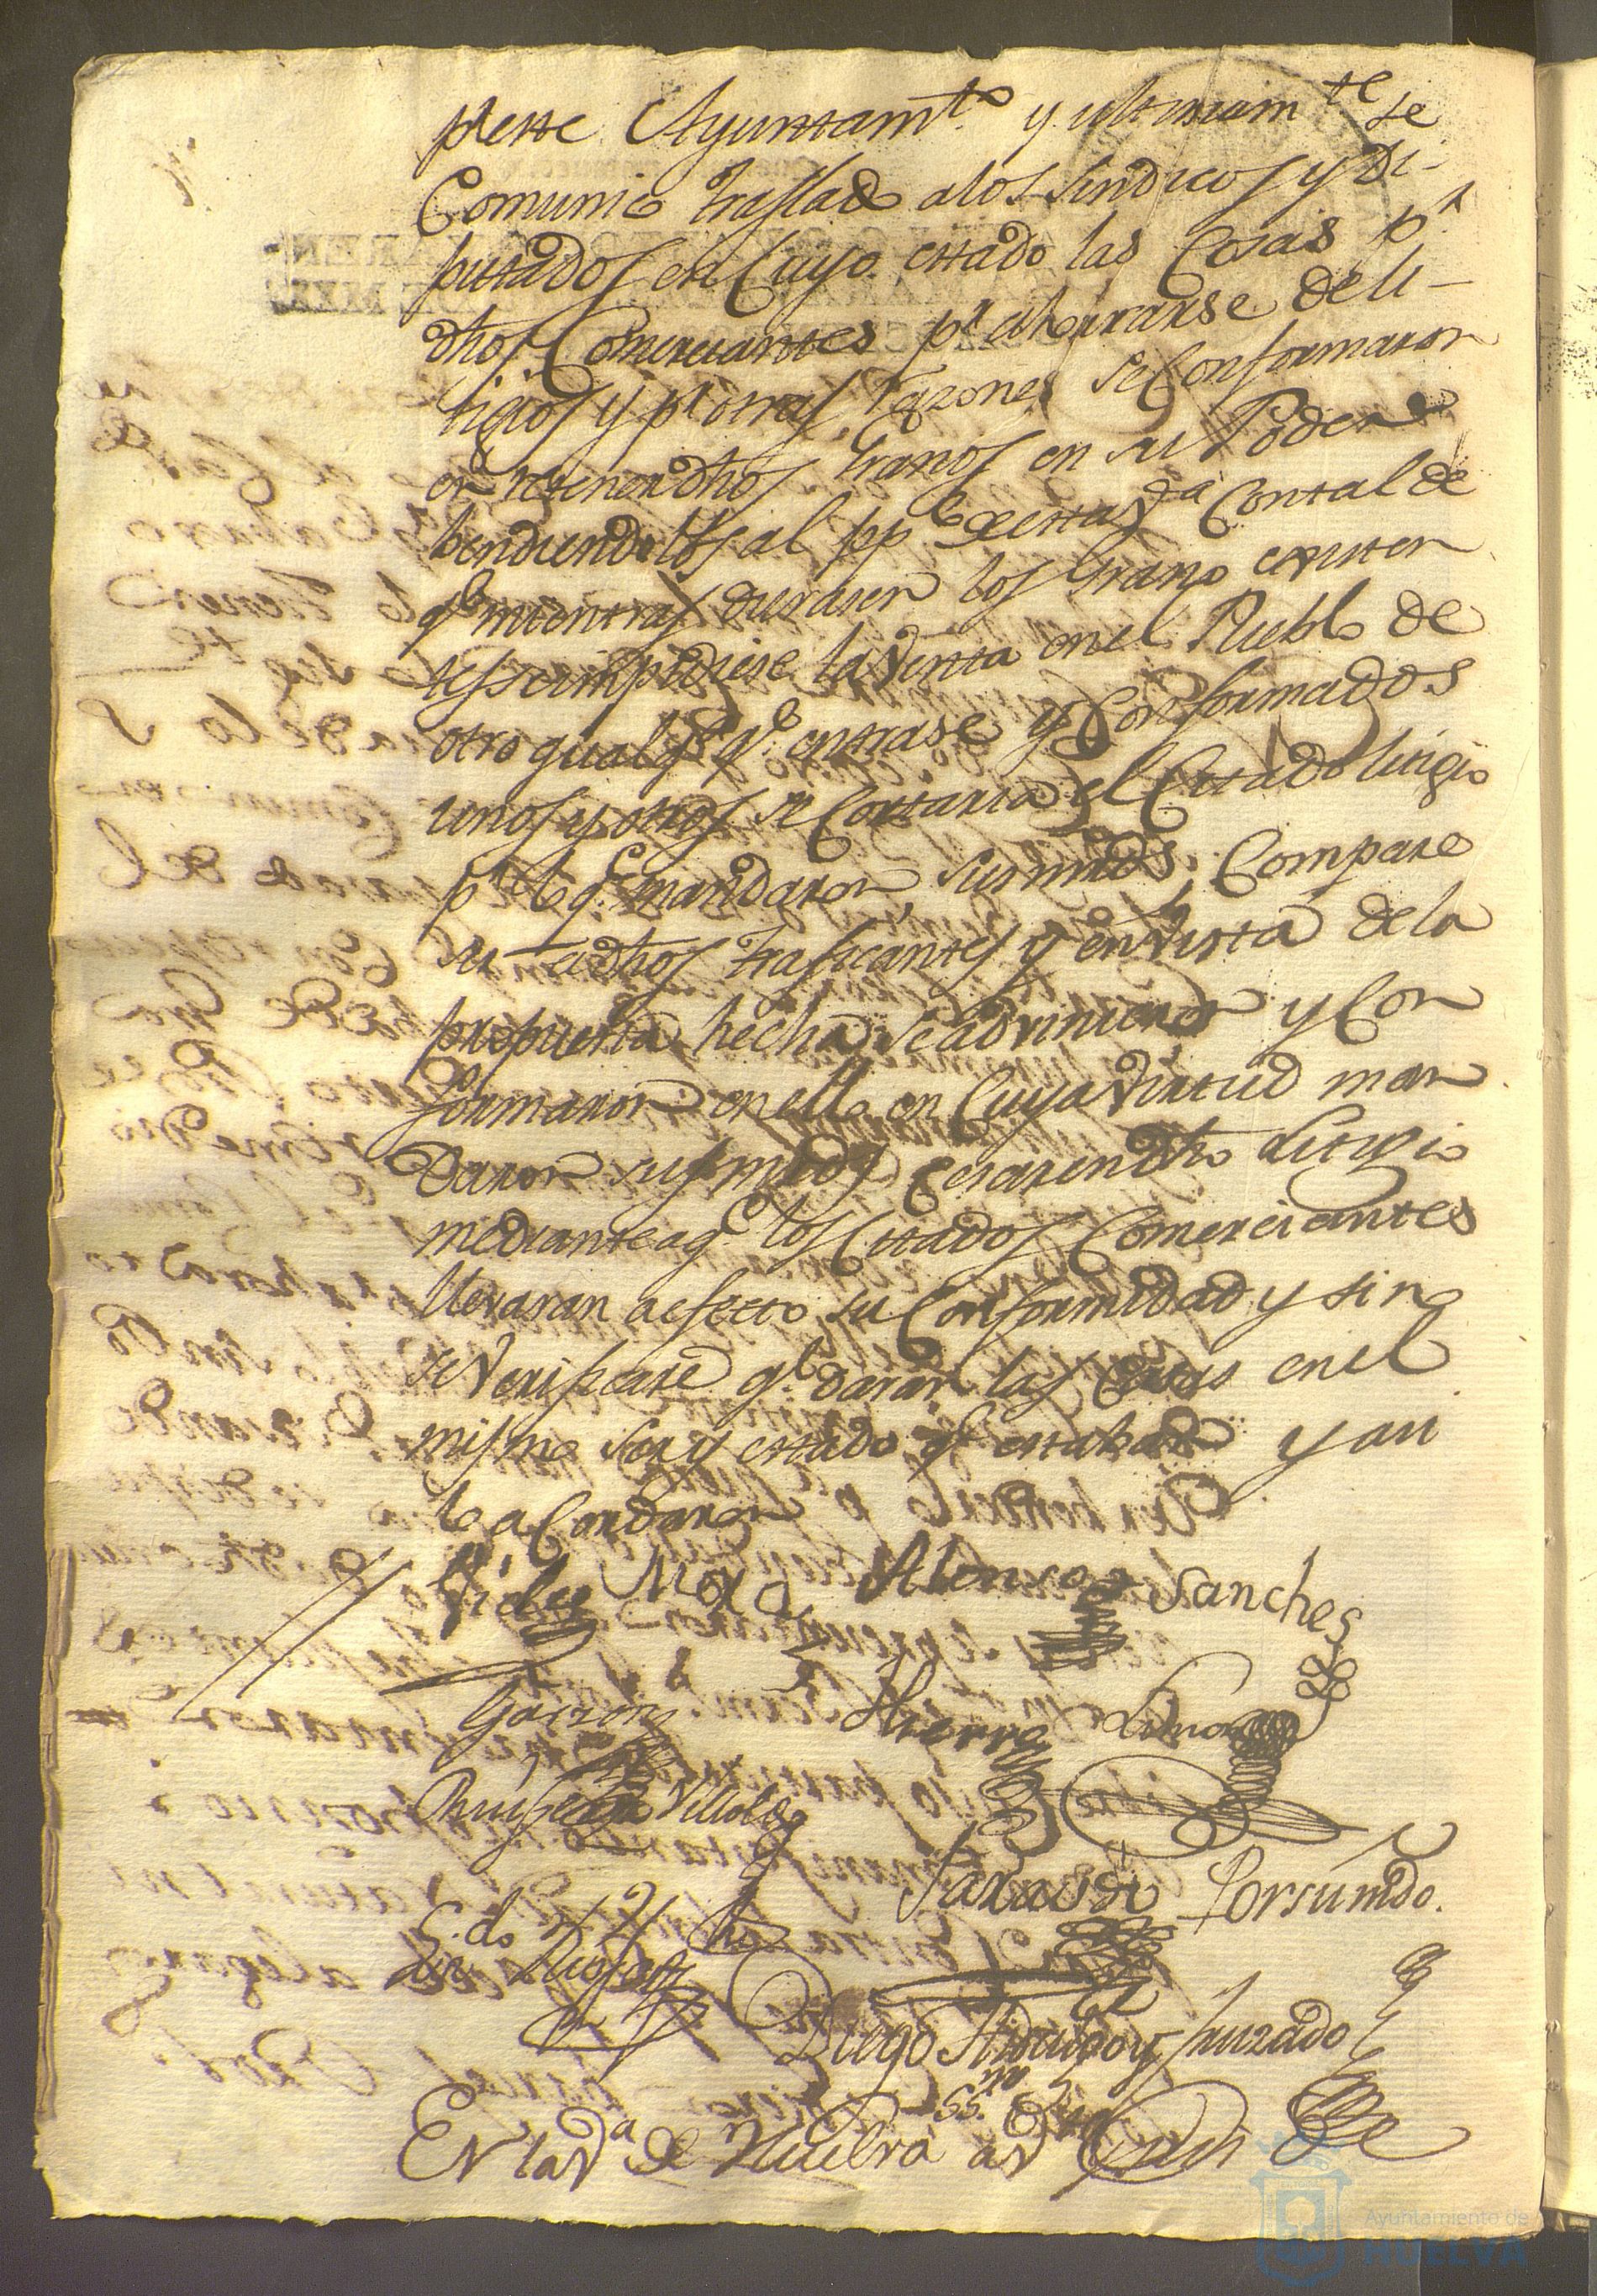 p.r este Ayuntam.to y ultimam.te se
Comunico traslado alos Sindicos y Di-
putados en Cuyo estado las Cosas p.r
dhos Comerciantes p.r ahorrarse de li-
tigios y p.r otras razones se Conformaron
en retener dhos Granos en su Poder
bendiendolos al pp.co de esta V.a Con tal de
q.e mientras durasen los Granos existen
tes se impidiese la Venta en el Pueblo de
otro qualq.r q.e entrase y Conformados
unos y otros se Cortaria el Citado litigio
p.r lo q.e mandaron sus mrds. Compare
su- a dhos traficantes y en Vista de la
propuesta hecha se advinieron y Con
formaron en ello en Cuya Virtud man
daron sus mrds Cesar en dho Litigio
mediante a q.e los Citados Comerciantes
llevaran a efecto su Conformidad y si no
se Verificare q.e daran las Cosas en el
mismo ser y estado q.e estaban y asi
lo aCordaron
Fides Mora Alonso Sanches
Garzon Hierro Limon
Villalba
Saravia Forsunido.
Diego Hidalgo y Jurado
SS.no
En la V.a de Huelva a V.te de
Ayuntamiento de
HUELVA